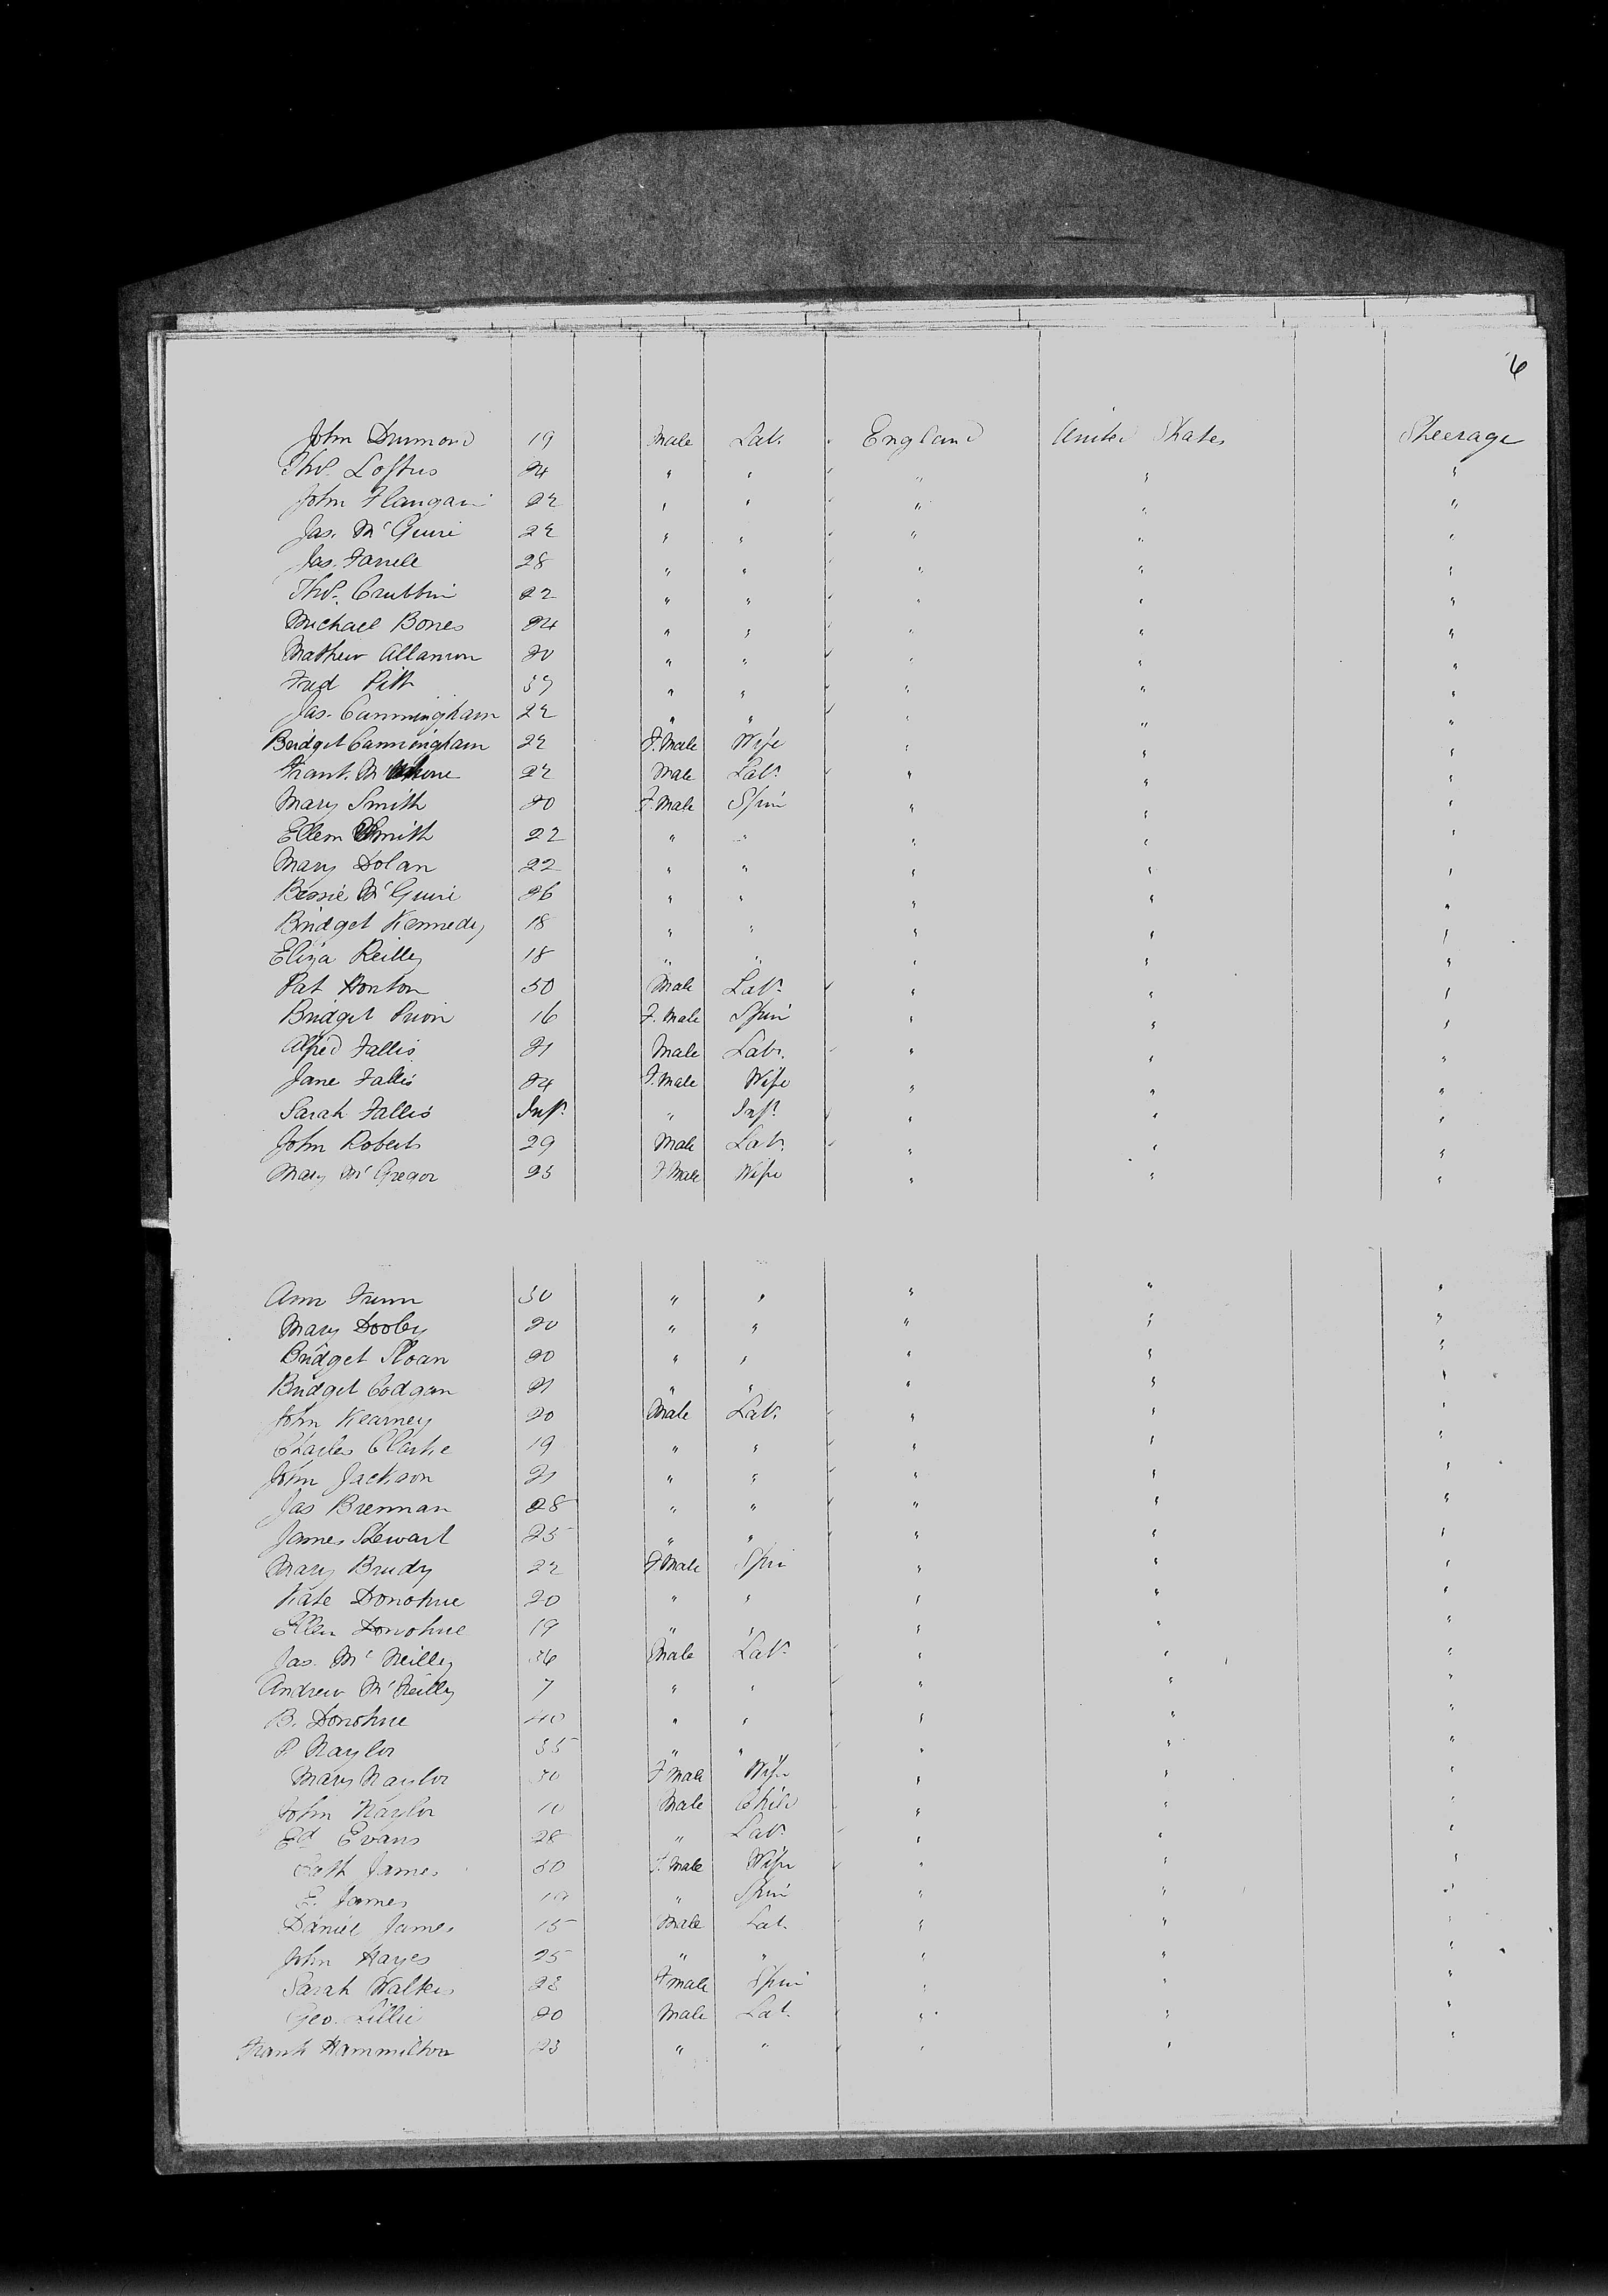 6
John Drumond 19 Male Lab. England United States Steerage
Thos. Loftus 24 " " " " "
John Flangan 22 " " " " "
Jas. McGuire 22 " " " " "
Jas. Farrell 28 " " " " "
Thos. Crubbin 22 " " " " "
Michael Bones 24 " " " " "
Mathew 20 " " " " "
Fred Pitt 37 " " " " "
Jas. Cunningham 22 " " " " "
Bridget Cunningham 22 F.Male Wife " " "
Frank 22 Male Labr " " "
Mary Smith 20 F.Male Spin " " "
Ellen Smith 22 " " " " "
Mary Dolan 22 " " " " "
Bessie McGuire 26 " " " " "
Bridget Kennedy 18 " " " " "
Eliza Reilly 18 " " " " "
Pat Horton 50 Male Labr " " "
Bridget Prion 16 F.Male Spin " " "
Alfred Fallis 21 Male Labr. " " "
Jane Fallis 24 F.Male Wife " " "
Sarah Fallis Inft " Inft " " "
John Roberts 29 Male Labr. " " "
Mary McGregor 23 F Male Wife " " "
Ann 30 " " " " "
Mary Dooley 20 " " " " "
Bridget Sloan 20 " " " " "
Bridget Codgan 21 " " " " "
John Kearney 20 Male Lab. " " "
Charles Clarke 19 " " " " "
John Jackson 21 " " " " "
Jas Brennan 28 " " " " "
James Stewart 25 " " " " "
Mary Brudy 22 F Male Spin " " "
Kate Donohue 20 " " " " "
Ellen Donohue 19 " " " " "
Jas. McNeilly 36 Male Labr " " "
Andrew McNeilly 7 " " " " "
B. Donohue 40 " " " " "
P Naylor 35 " " " " "
Mary Naylor 30 F Male Wife " " "
John Naylor 10 Male Child " " "
Ed Evans 28 " Labr " " "
Cath James 50 F.Male Wife " " "
E. James " Spin " " "
Daniel James 15 Male Lab. " " "
John Hayes 25 " " " " "
Sarah Walker 23 F male Spin " " "
Geo. Lillie 20 Male Lab. " " "
Frank Hammilton 23 " " " " "